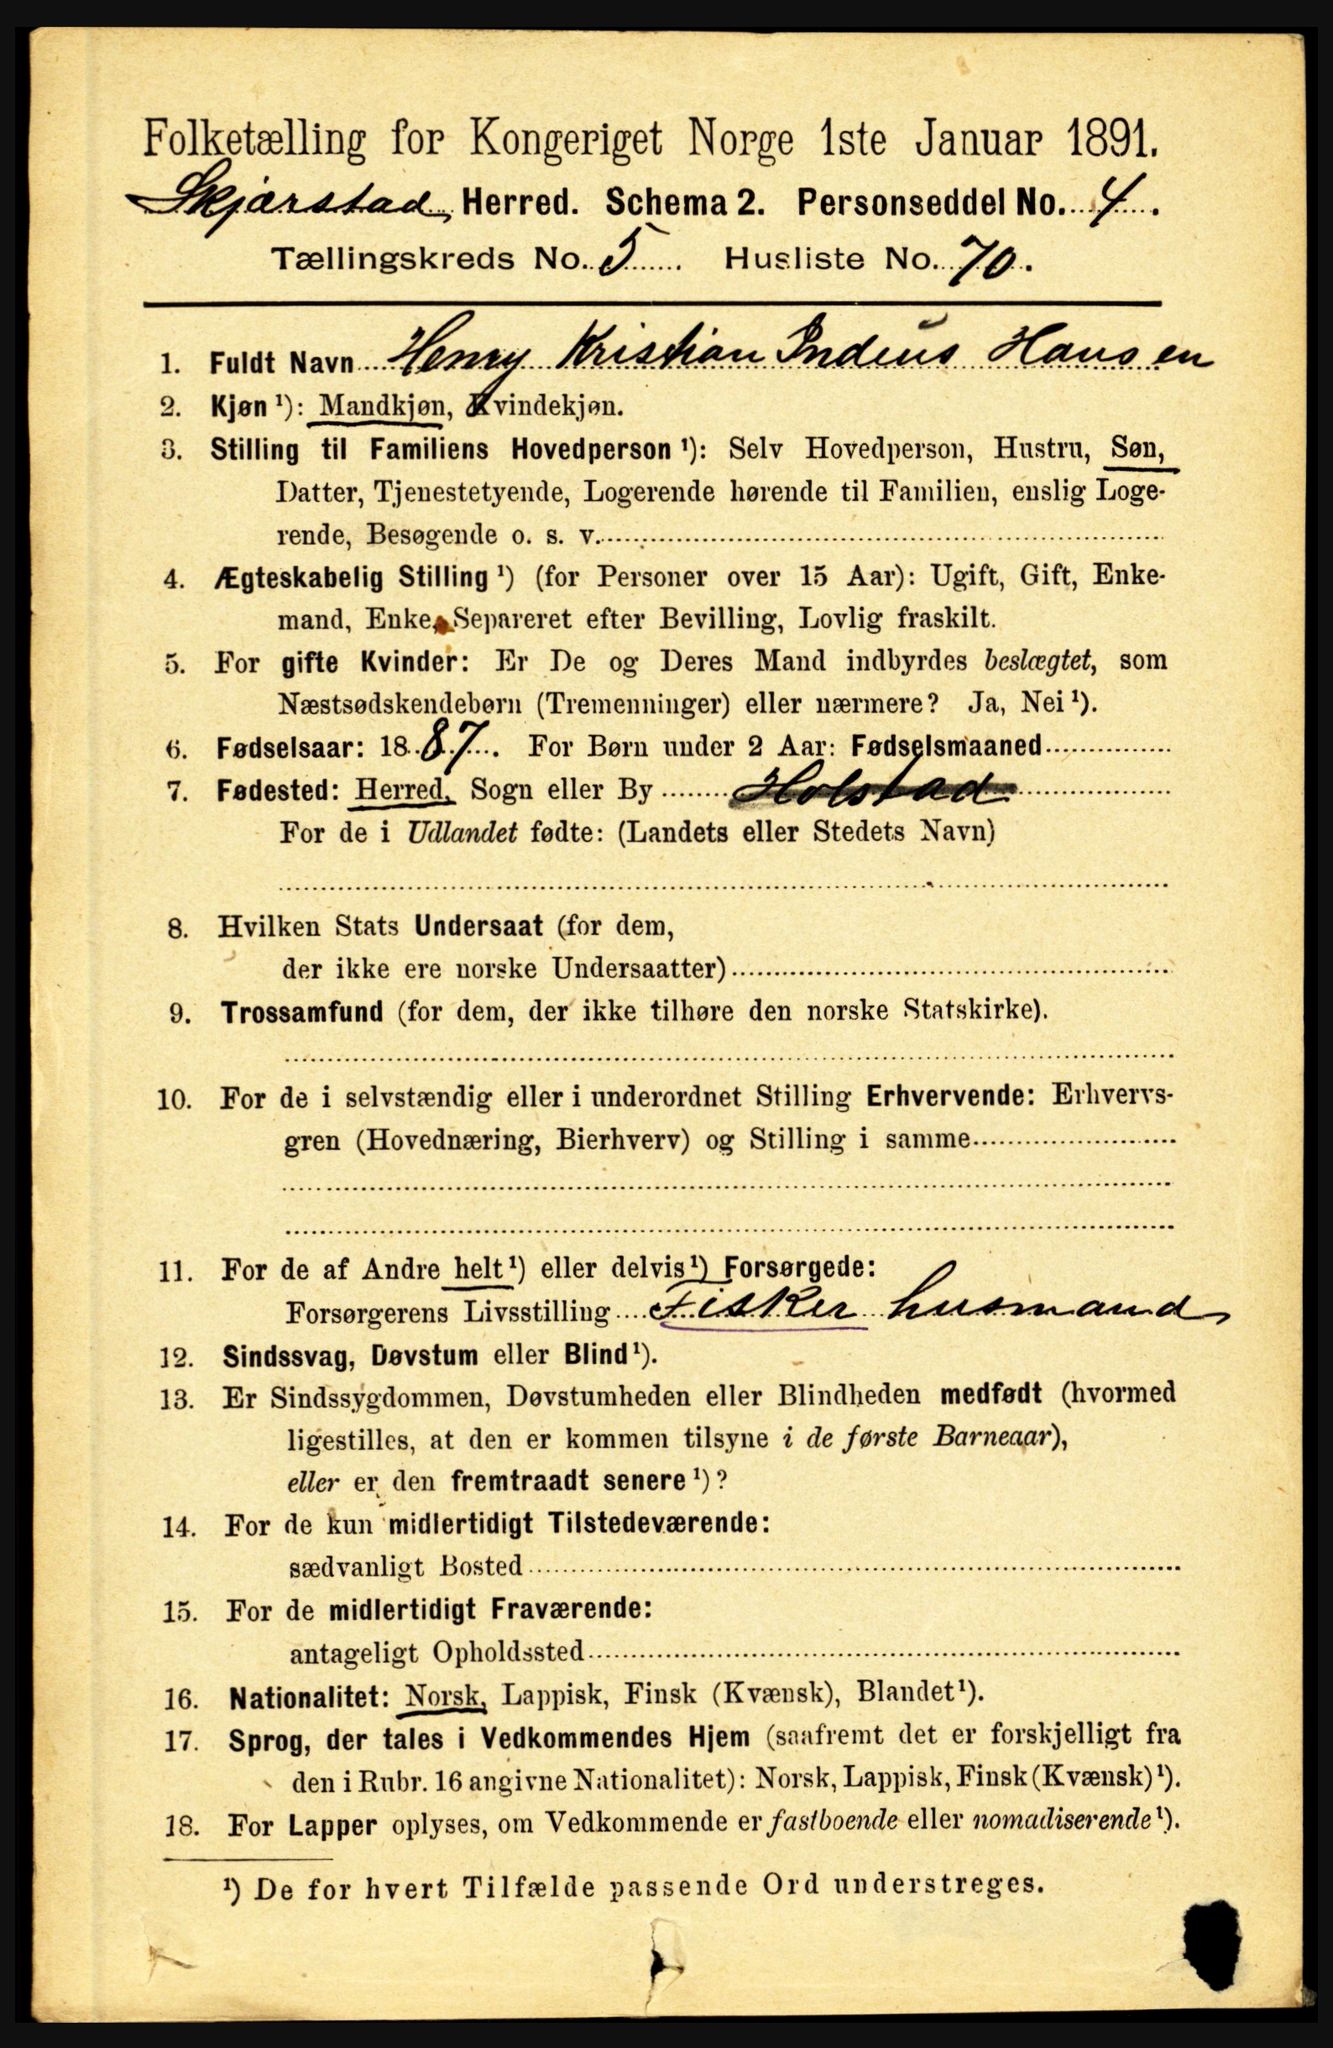 Folketælling for Kongeriget Norge 1ste Januar 1891.
Skjærstad Herred. Schema 2. Personseddel No. 4.
Tællingskreds No. 5 Husliste No. 70.
1. Fuldt Navn Henry Kristian Indeus Hansen
2. Kjøn ¹): Mandkjøn, Kvindekjøn.
3. Stilling til Familiens Hovedperson ¹): Selv Hovedperson, Hustru, Søn,
Datter, Tjenestetyende, Logerende hørende til Familien, enslig Loge-
rende, Besøgende o. s. v.
4. Ægteskabelig Stilling ¹) (for Personer over 15 Aar): Ugift, Gift, Enke-
mand, Enke, Separeret efter Bevilling, Lovlig fraskilt.
5. For gifte Kvinder: Er De og Deres Mand indbyrdes beslægtet, som
Næstsødskendebørn (Tremenninger) eller nærmere? Ja, Nei ¹).
6. Fødselsaar: 1887. For Børn under 2 Aar: Fødselsmaaned
7. Fødested: Herred, Sogn eller By Holstad
For de i Udlandet fødte: (Landets eller Stedets Navn)
8. Hvilken Stats Undersaat (for dem,
der ikke ere norske Undersaatter)
9. Trossamfund (for dem, der ikke tilhøre den norske Statskirke).
10. For de i selvstændig eller i underordnet Stilling Erhvervende: Erhvervs-
gren (Hovednæring, Bierhverv) og Stilling i samme
11. For de af Andre helt ¹) eller delvis ¹) Forsørgede:
Forsørgerens Livsstilling Fisker husmand
12. Sindssvag, Døvstum eller Blind ¹).
13. Er Sindssygdommen, Døvstumheden eller Blindheden medfødt (hvormed
ligestilles, at den er kommen tilsyne i de første Barneaar),
eller er den fremtraadt senere ¹)?
14. For de kun midlertidigt Tilstedeværende:
sædvanligt Bosted
15. For de midlertidigt Fraværende:
antageligt Opholdssted
16. Nationalitet: Norsk, Lappisk, Finsk (Kvænsk), Blandet ¹).
17. Sprog, der tales i Vedkommendes Hjem (saafremt det er forskjelligt fra
den i Rubr. 16 angivne Nationalitet): Norsk, Lappisk, Finsk (Kvænsk) ¹).
18. For Lapper oplyses, om Vedkommende er fastboende eller nomadiserende ¹).
¹) De for hvert Tilfælde passende Ord understreges.